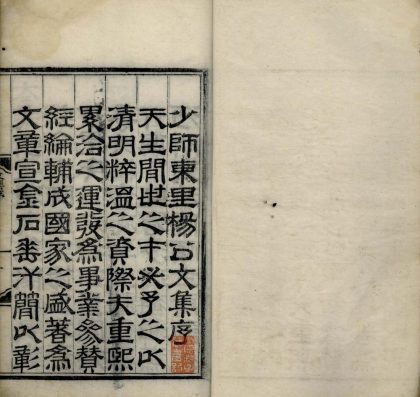 少師東里楊公文集序
天生間世之才必予之以
清明粹溫之資際夫重熙
累洽之運發為事業參贊
經綸輔成國家之盛著為
文章宣金石垂汗簡以彰